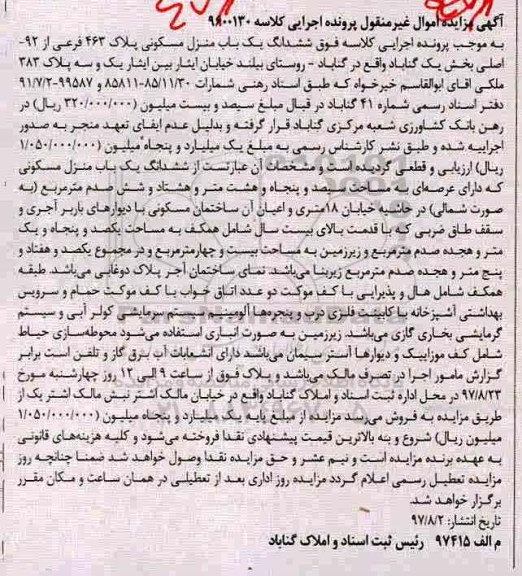 آگهی مزایده اموال غیرمنقول پرونده اجرایی کلاسه ۹۶۰۰۱۳۰
به موجب پرونده اجرایی کلاسه فوق ششدانگ یک باب منزل مسکونی پلاک ۴۶۳ فرعی از ۹۲-
اصلی بخش یک گناباد واقع در گناباد - روستای بیلند خیابان ایثار بین ایثار یک و سه پلاک ۳۸۳
ملکی آقای ابوالقاسم خیرخواه که طبق اسناد رهنی شمارات ۸۵/۱۱/۳۰-۸۵۸۱۱ و ۹۹۵۸۷-۹۱/۷/۲
دفتر اسناد رسمی شماره ۴۱ گناباد در قبال مبلغ سیصد و بیست میلیون (۳۲۰/۰۰۰/۰۰۰ ریال) در
رهن بانک کشاورزی شعبه مرکزی گناباد قرار گرفته و بدلیل عدم ایفای تعهد منجر به صدور
اجراییه شده و طبق نشر کارشناس رسمی به مبلغ یک میلیارد و پنجاه میلیون (۱/۰۵۰/۰۰۰/۰۰۰
ریال) ارزیابی و قطعی گردیده است و مشخصات آن عبارتست از ششدانگ یک باب منزل مسکونی
که دارای عرصه‌ای به مساحت سیصد و پنجاه و هشت متر و هشتاد و شش صدم مترمربع (به
صورت شمالی) در حاشیه خیابان ۱۸متری و اعیان آن ساختمان مسکونی با دیوارهای باربر آجری و
سقف طاق ضربی که با قدمت بالای بیست سال شامل همکف به مساحت یکصد و پنجاه و یک
متر و هجده صدم مترمربع و زیرزمین به مساحت بیست و چهارمترمربع و در مجموع یکصد و هفتاد و
پنج متر و هجده صدم مترمربع زیربنا می‌باشد. نمای ساختمان آجر پلاک دوغابی می‌باشد. طبقه
همکف شامل هال و پذیرایی با کف موکت دو عدد اتاق خواب با کف موکت حمام و سرویس
بهداشتی آشپزخانه با کابینت فلزی درب و پنجره‌ها آلومینیم سیستم سرمایشی کولر آبی و سیستم
گرمایشی بخاری گازی می‌باشد. زیرزمین به صورت انباری استفاده می‌شود محوطه‌سازی حیاط
شامل کف موزاییک و دیوارها آستر سیمان می‌باشد دارای انشعابات آب برق گاز و تلفن است برابر
گزارش مامور اجرا در تصرف مالک می‌باشد و پلاک فوق از ساعت ۹ الی ۱۲ روز چهارشنبه مورخ
۹۷/۸/۲۳ در محل اداره ثبت اسناد و املاک گناباد واقع در خیابان مالک اشتر نبش مالک اشتر یک از
طریق مزایده به فروش می‌رسد مزایده از مبلغ پایه یک میلیارد و پنجاه میلیون (۱/۰۵۰/۰۰۰/۰۰۰
میلیون ریال) شروع و بنه بالاترین قیمت پیشنهادی نقدا فروخته می‌شود و کلیه هزینه‌های قانونی
به عهده برنده مزایده است و نیم عشر و حق مزایده نقدا وصول خواهد شد ضمنا چنانچه روز
مزایده تعطیل رسمی اعلام گردد مزایده روز اداری بعد از تعطیلی در همان ساعت و مکان مقرر
برگزار خواهد شد.
تاریخ انتشار: ۹۷/۸/۲
م الف ۹۷۴۱۵ رئیس ثبت اسناد و املاک گناباد